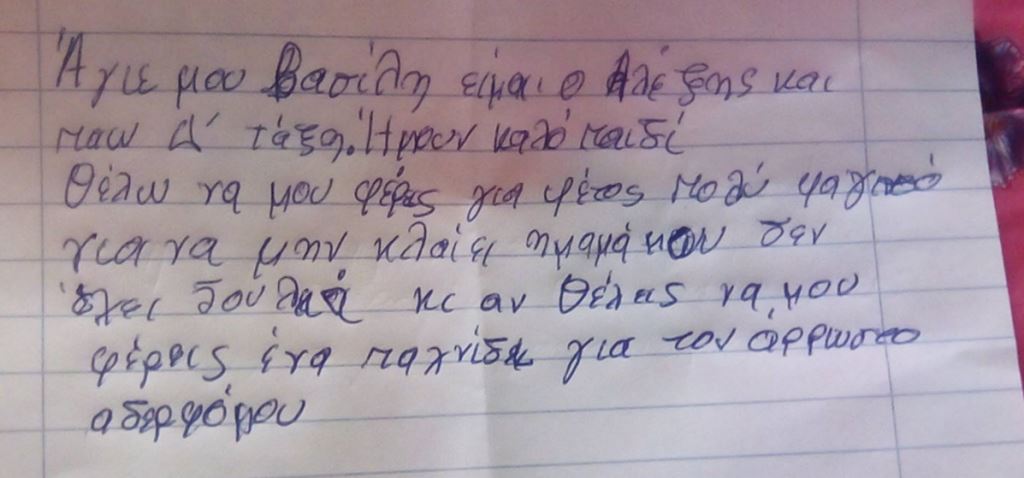 Άγιε μου Βασίλη είμαι ο Αλέξης και
παω Δ' τάξη. Ήμουν καλό παιδί
Θέλω να μου φέρεις για φέτος πολύ φαγητό
για να μην κλαίει η μαμά μου δεν
έχει δουλειά κι αν θέλεις να μου
φέρεις ένα παχνίδι για τον άρρωστο
αδερφό μου